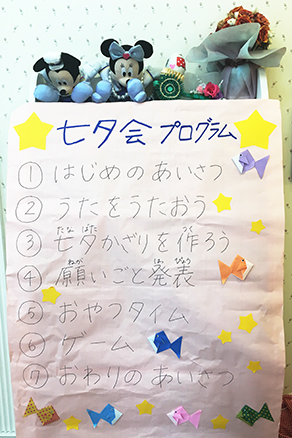 七夕会 プログラム
① はじめのあいさつ
② うたをうたおう
③ 七夕かざりを作ろう
④ 願いごと発表
⑤ おやつタイム
⑥ ゲーム
⑦ おわりのあいさつ